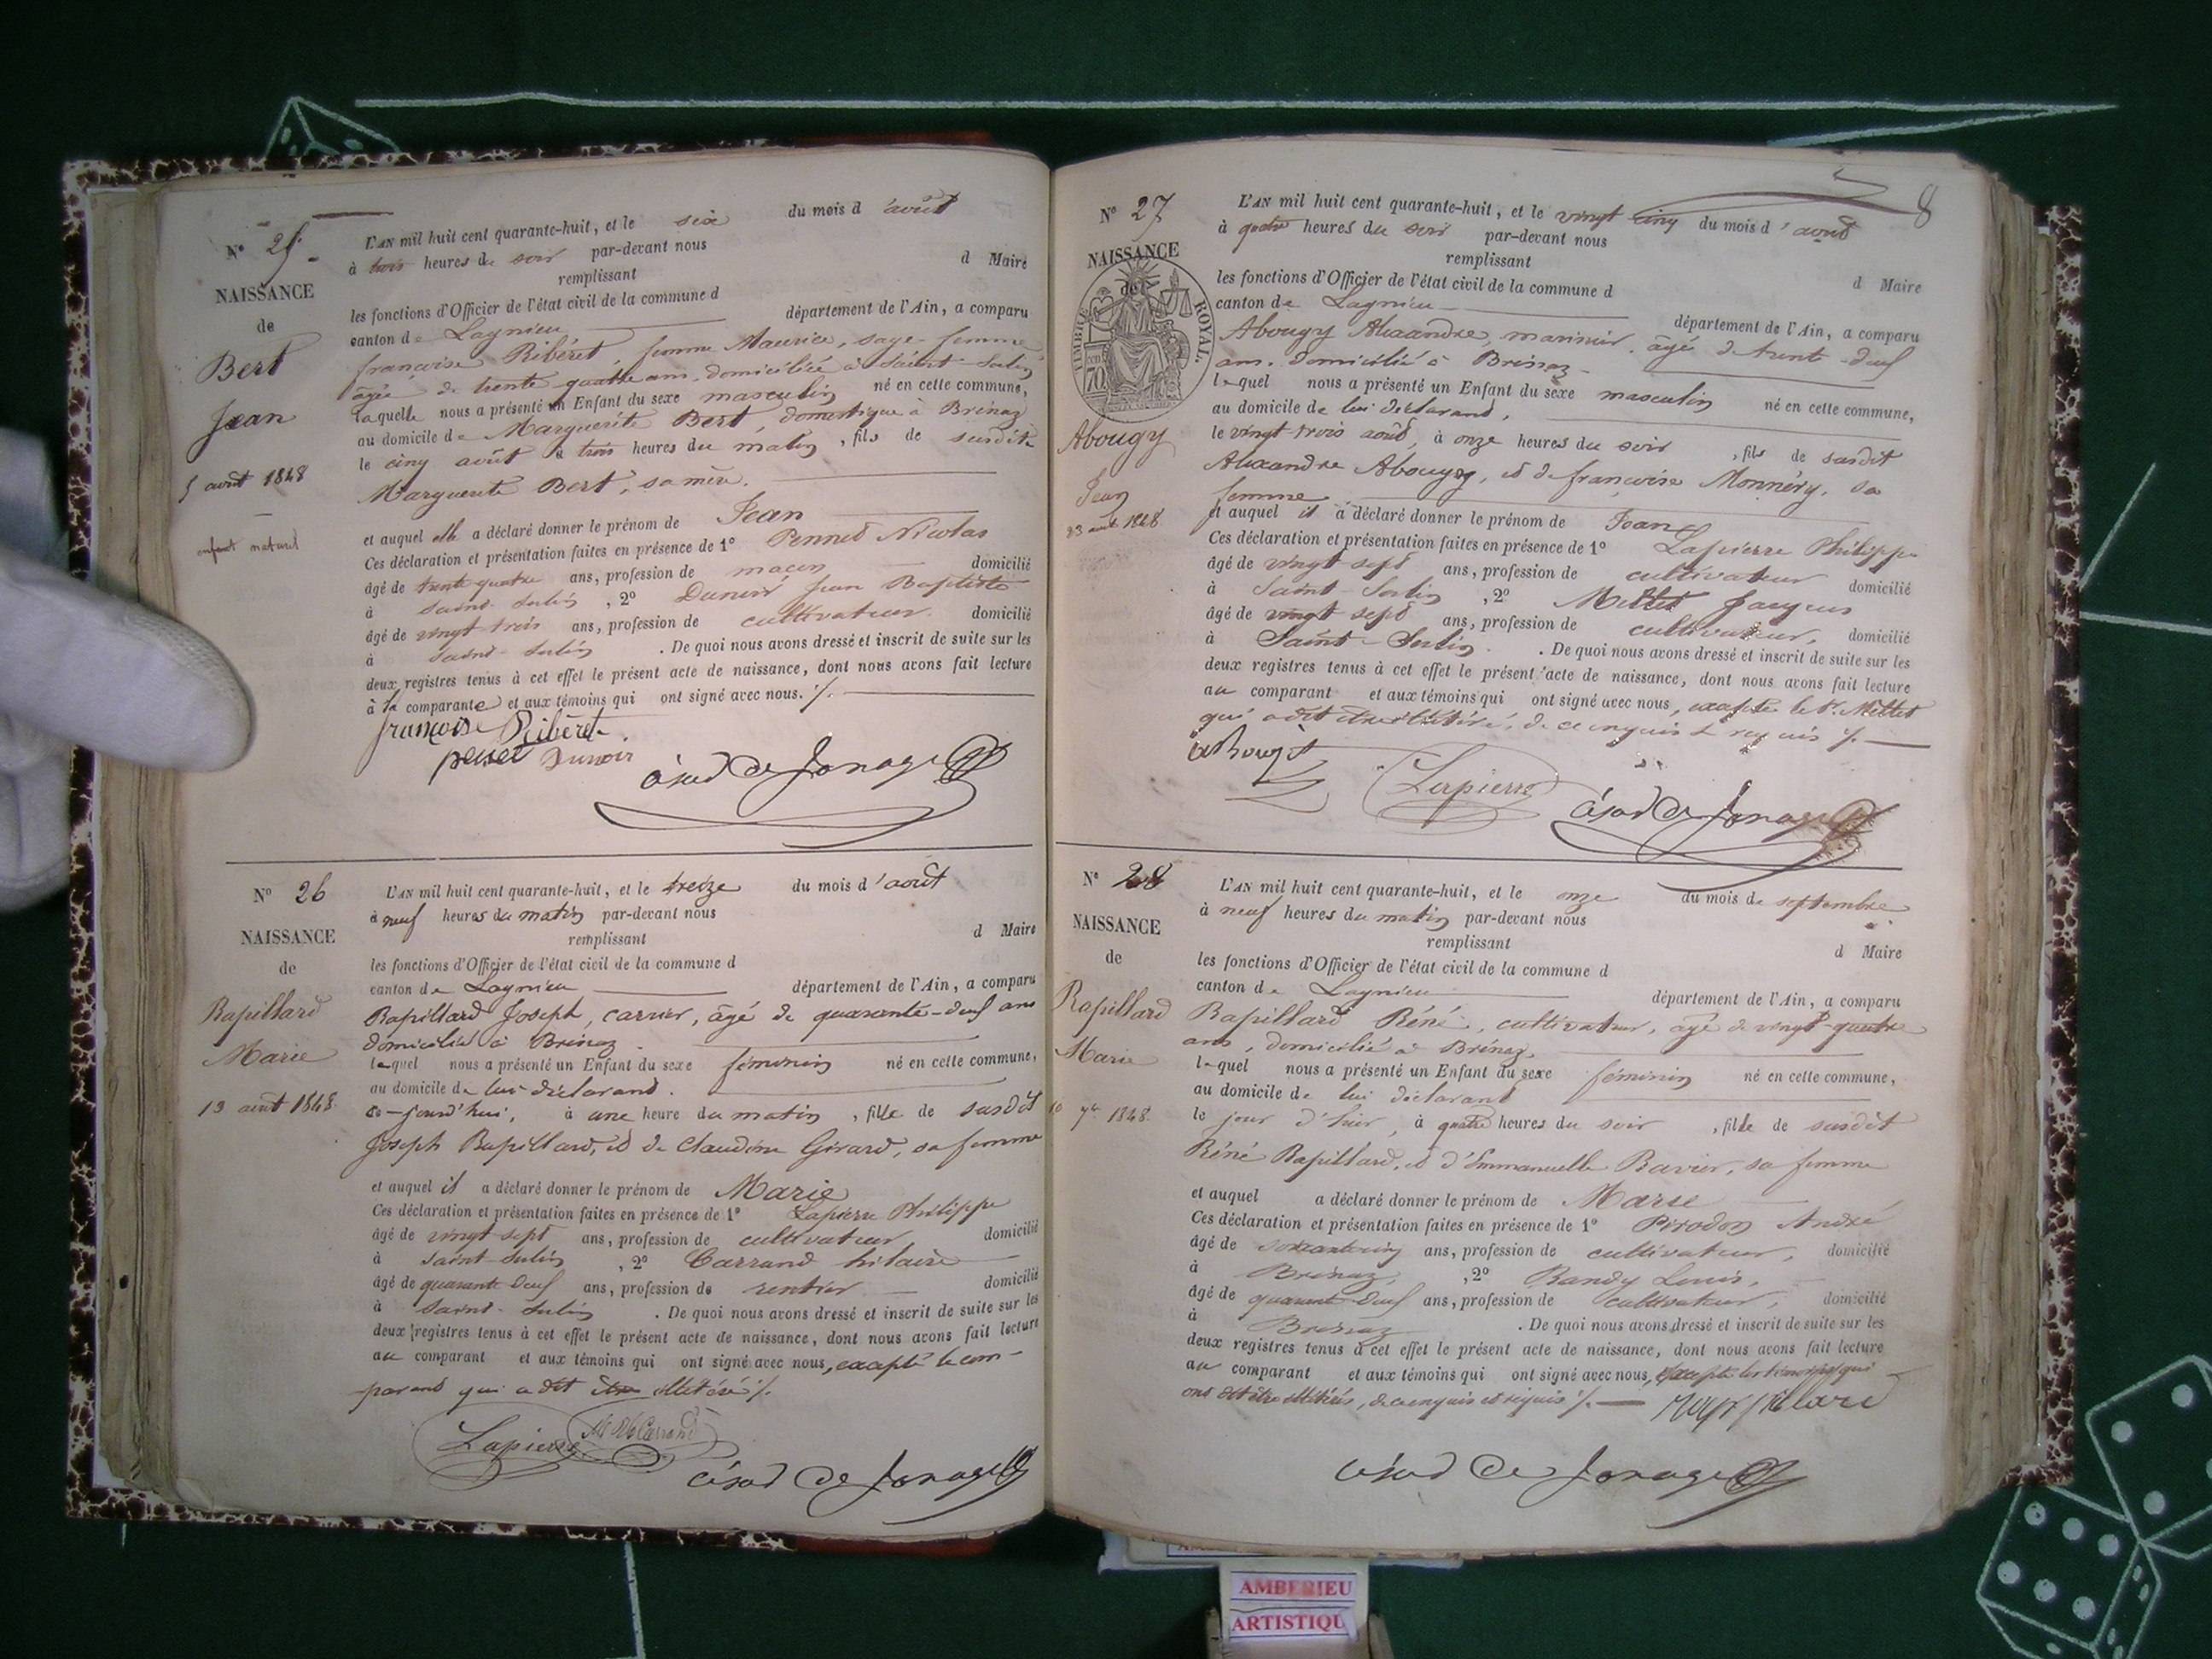 N° 25.
NAISSANCE
de
Bert
Jean
5 août 1848
enfant naturel
L'AN mil huit cent quarante-huit, et le six du mois d'août
à trois heures du soir par-devant nous
remplissant d Maire
les fonctions d'Officier de l'état civil de la commune d
canton de Lagnieu département de l'Ain, a comparu
françoise Ribéret, femme Maurice, sage-femme
âgée de trente quatre ans, domiciliée à Saint-Sorlin
laquelle nous a présenté un Enfant du sexe masculin né en cette commune,
au domicile de Marguerite Bert, domestique à Brénaz
le cinq août à trois heures du matin, fils de susdite
Marguerite Bert, sa mère.
et auquel elle a déclaré donner le prénom de Jean
Ces déclaration et présentation faites en présence de 1° Pennet Nicolas
âgé de trente quatre ans, profession de maçon domicilié
à saint-Sorlin, 2° Dunoir Jean Baptiste
âgé de vingt-trois ans, profession de cultivateur domicilié
à saint-Sorlin. De quoi nous avons dressé et inscrit de suite sur les
deux registres tenus à cet effet le présent acte de naissance, dont nous avons fait lecture
à la comparante et aux témoins qui ont signé avec nous. /.
françoise Ribéret
Dunoir
de Jonage
N° 26
NAISSANCE
de
Rapillard
Marie
13 août 1848
L'AN mil huit cent quarante-huit, et le treize du mois d'août
à neuf heures du matin par-devant nous
remplissant d Maire
les fonctions d'Officier de l'état civil de la commune d
canton de Lagnieu département de l'Ain, a comparu
Rapillard Joseph, carrier, âgé de quarante-deuf ans
domicilié à Brénaz.
lequel nous a présenté un Enfant du sexe féminin né en cette commune,
au domicile de lui déclarant.
ce-jourd'hui, à une heure du matin, fille de susdit
Joseph Rapillard, et de Claudine Girard, sa femme
et auquel il a déclaré donner le prénom de Marie
Ces déclaration et présentation faites en présence de 1° Lapierre Philippe
âgé de vingt sept ans, profession de cultivateur domicilié
à saint-Sorlin, 2° Carrand hilaire
âgé de quarante deuf ans, profession de rentier domicilié
à saint-Sorlin. De quoi nous avons dressé et inscrit de suite sur les
deux registres tenus à cet effet le présent acte de naissance, dont nous avons fait lecture
au comparant et aux témoins qui ont signé avec nous, excepté le com-
parant qui a dit être illétéré /.
Lapierre Carrand
de Jonage
8
N° 27
NAISSANCE
de
TIMBRE ROYAL
70
Abougy
Jean
23 août 1848
L'AN mil huit cent quarante-huit, et le vingt cinq du mois d'août
à quatre heures du soir par-devant nous
remplissant d Maire
les fonctions d'Officier de l'état civil de la commune d
canton de Lagnieu département de l'Ain, a comparu
Abougy Alexandre, marinier, âgé de trente-deuf
ans, domicilié à Brénaz
lequel nous a présenté un Enfant du sexe masculin né en cette commune,
au domicile de lui déclarant,
le vingt-trois août, à onze heures du soir, fils de susdit
Alexandre Abougy, et de françoise Monnéry, sa
femme
et auquel il a déclaré donner le prénom de Jean
Ces déclaration et présentation faites en présence de 1° Lapierre Philippe
âgé de vingt sept ans, profession de cultivateur domicilié
à Saint-Sorlin, 2° Millet Jacques
âgé de vingt sept ans, profession de cultivateur, domicilié
à Saint-Sorlin. De quoi nous avons dressé et inscrit de suite sur les
deux registres tenus à cet effet le présent acte de naissance, dont nous avons fait lecture
au comparant et aux témoins qui ont signé avec nous, excepté le Sr Millet
qui a dit être illétéré, de ce enquis et requis /.
Lapierre
de Jonage
N° 28
NAISSANCE
de
Rapillard
Marie
10 7bre 1848
L'AN mil huit cent quarante-huit, et le onze du mois de septembre
à neuf heures du matin par-devant nous
remplissant d Maire
les fonctions d'Officier de l'état civil de la commune d
canton de Lagnieu département de l'Ain, a comparu
Rapillard Réné, cultivateur, âgé de vingt-quatre
ans, domicilié à Brénaz,
lequel nous a présenté un Enfant du sexe féminin né en cette commune,
au domicile de lui déclarant
le jour d'hier, à quatre heures du soir, fille de susdit
Réné Rapillard, et d'Emmanuelle Ravier, sa femme
et auquel a déclaré donner le prénom de Marie
Ces déclaration et présentation faites en présence de 1° Pirodon André
âgé de soixante cinq ans, profession de cultivateur, domicilié
à Brénaz, 2° Bandy Louis,
âgé de quarante-deuf ans, profession de cultivateur, domicilié
à Brénaz. De quoi nous avons dressé et inscrit de suite sur les
deux registres tenus à cet effet le présent acte de naissance, dont nous avons fait lecture
au comparant et aux témoins qui ont signé avec nous, excepté les témoins qui
ont dit être illétérés, de ce enquis et requis /.
de Jonage
AMBERIEU
ARTISTIQU